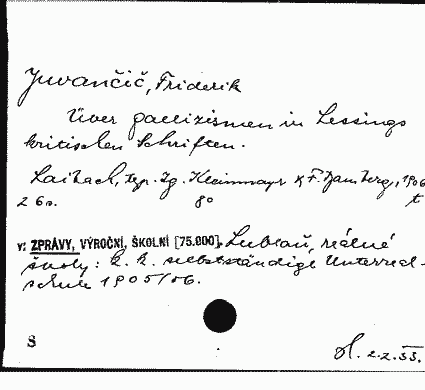 Juvančič, Friderik
Über Gallizismen in Lessings
kritischen Schriften.
Laibach, typ. Ig. Kleinmayr & F. Bamberg, 1906
26 s. 8°
v: ZPRÁVY, VÝROČNÍ, ŠKOLNÍ [75.000]. Lublaň, reálné
školy: k. k. selbstständige Unterreal-
schule 1905/06.
S
2.2.55.